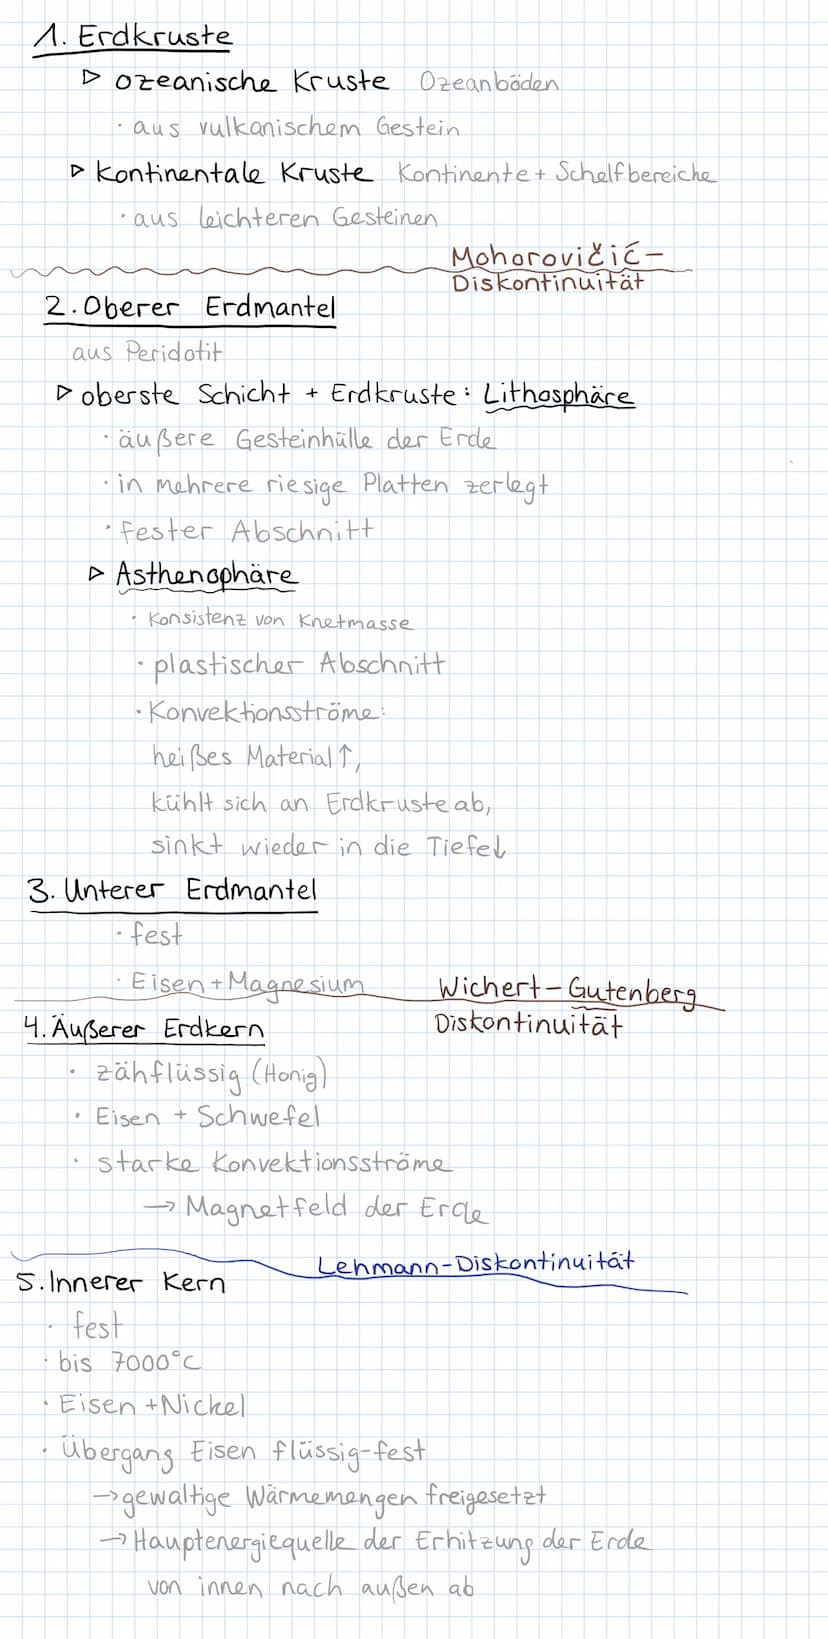 1. Erdkruste
▷ ozeanische Kruste Ozeanböden
· aus vulkanischem Gestein
▷ kontinentale Kruste Kontinente + Schelfbereiche
· aus leichteren Gesteinen
Mohorovičić-
Diskontinuität
2. Oberer Erdmantel
aus Peridotit
▷ oberste Schicht + Erdkruste: Lithosphäre
· äußere Gesteinhülle der Erde
· in mehrere riesige Platten zerlegt
· fester Abschnitt
▷ Asthenophäre
· Konsistenz von Knetmasse
· plastischer Abschnitt
· Konvektionsströme:
heißes Material ↑,
kühlt sich an Erdkruste ab,
sinkt wieder in die Tiefe ↓
3. Unterer Erdmantel
· fest
· Eisen + Magnesium
Wichert-Gutenberg
Diskontinuität
4. Äußerer Erdkern
· zähflüssig (Honig)
· Eisen + Schwefel
· starke Konvektionsströme
→ Magnetfeld der Erde
Lehmann-Diskontinuität
5. Innerer Kern
· fest
· bis 7000°C
· Eisen + Nickel
· Übergang Eisen flüssig-fest
→ gewaltige Wärmemengen freigesetzt
→ Hauptenergiequelle der Erhitzung der Erde
von innen nach außen ab